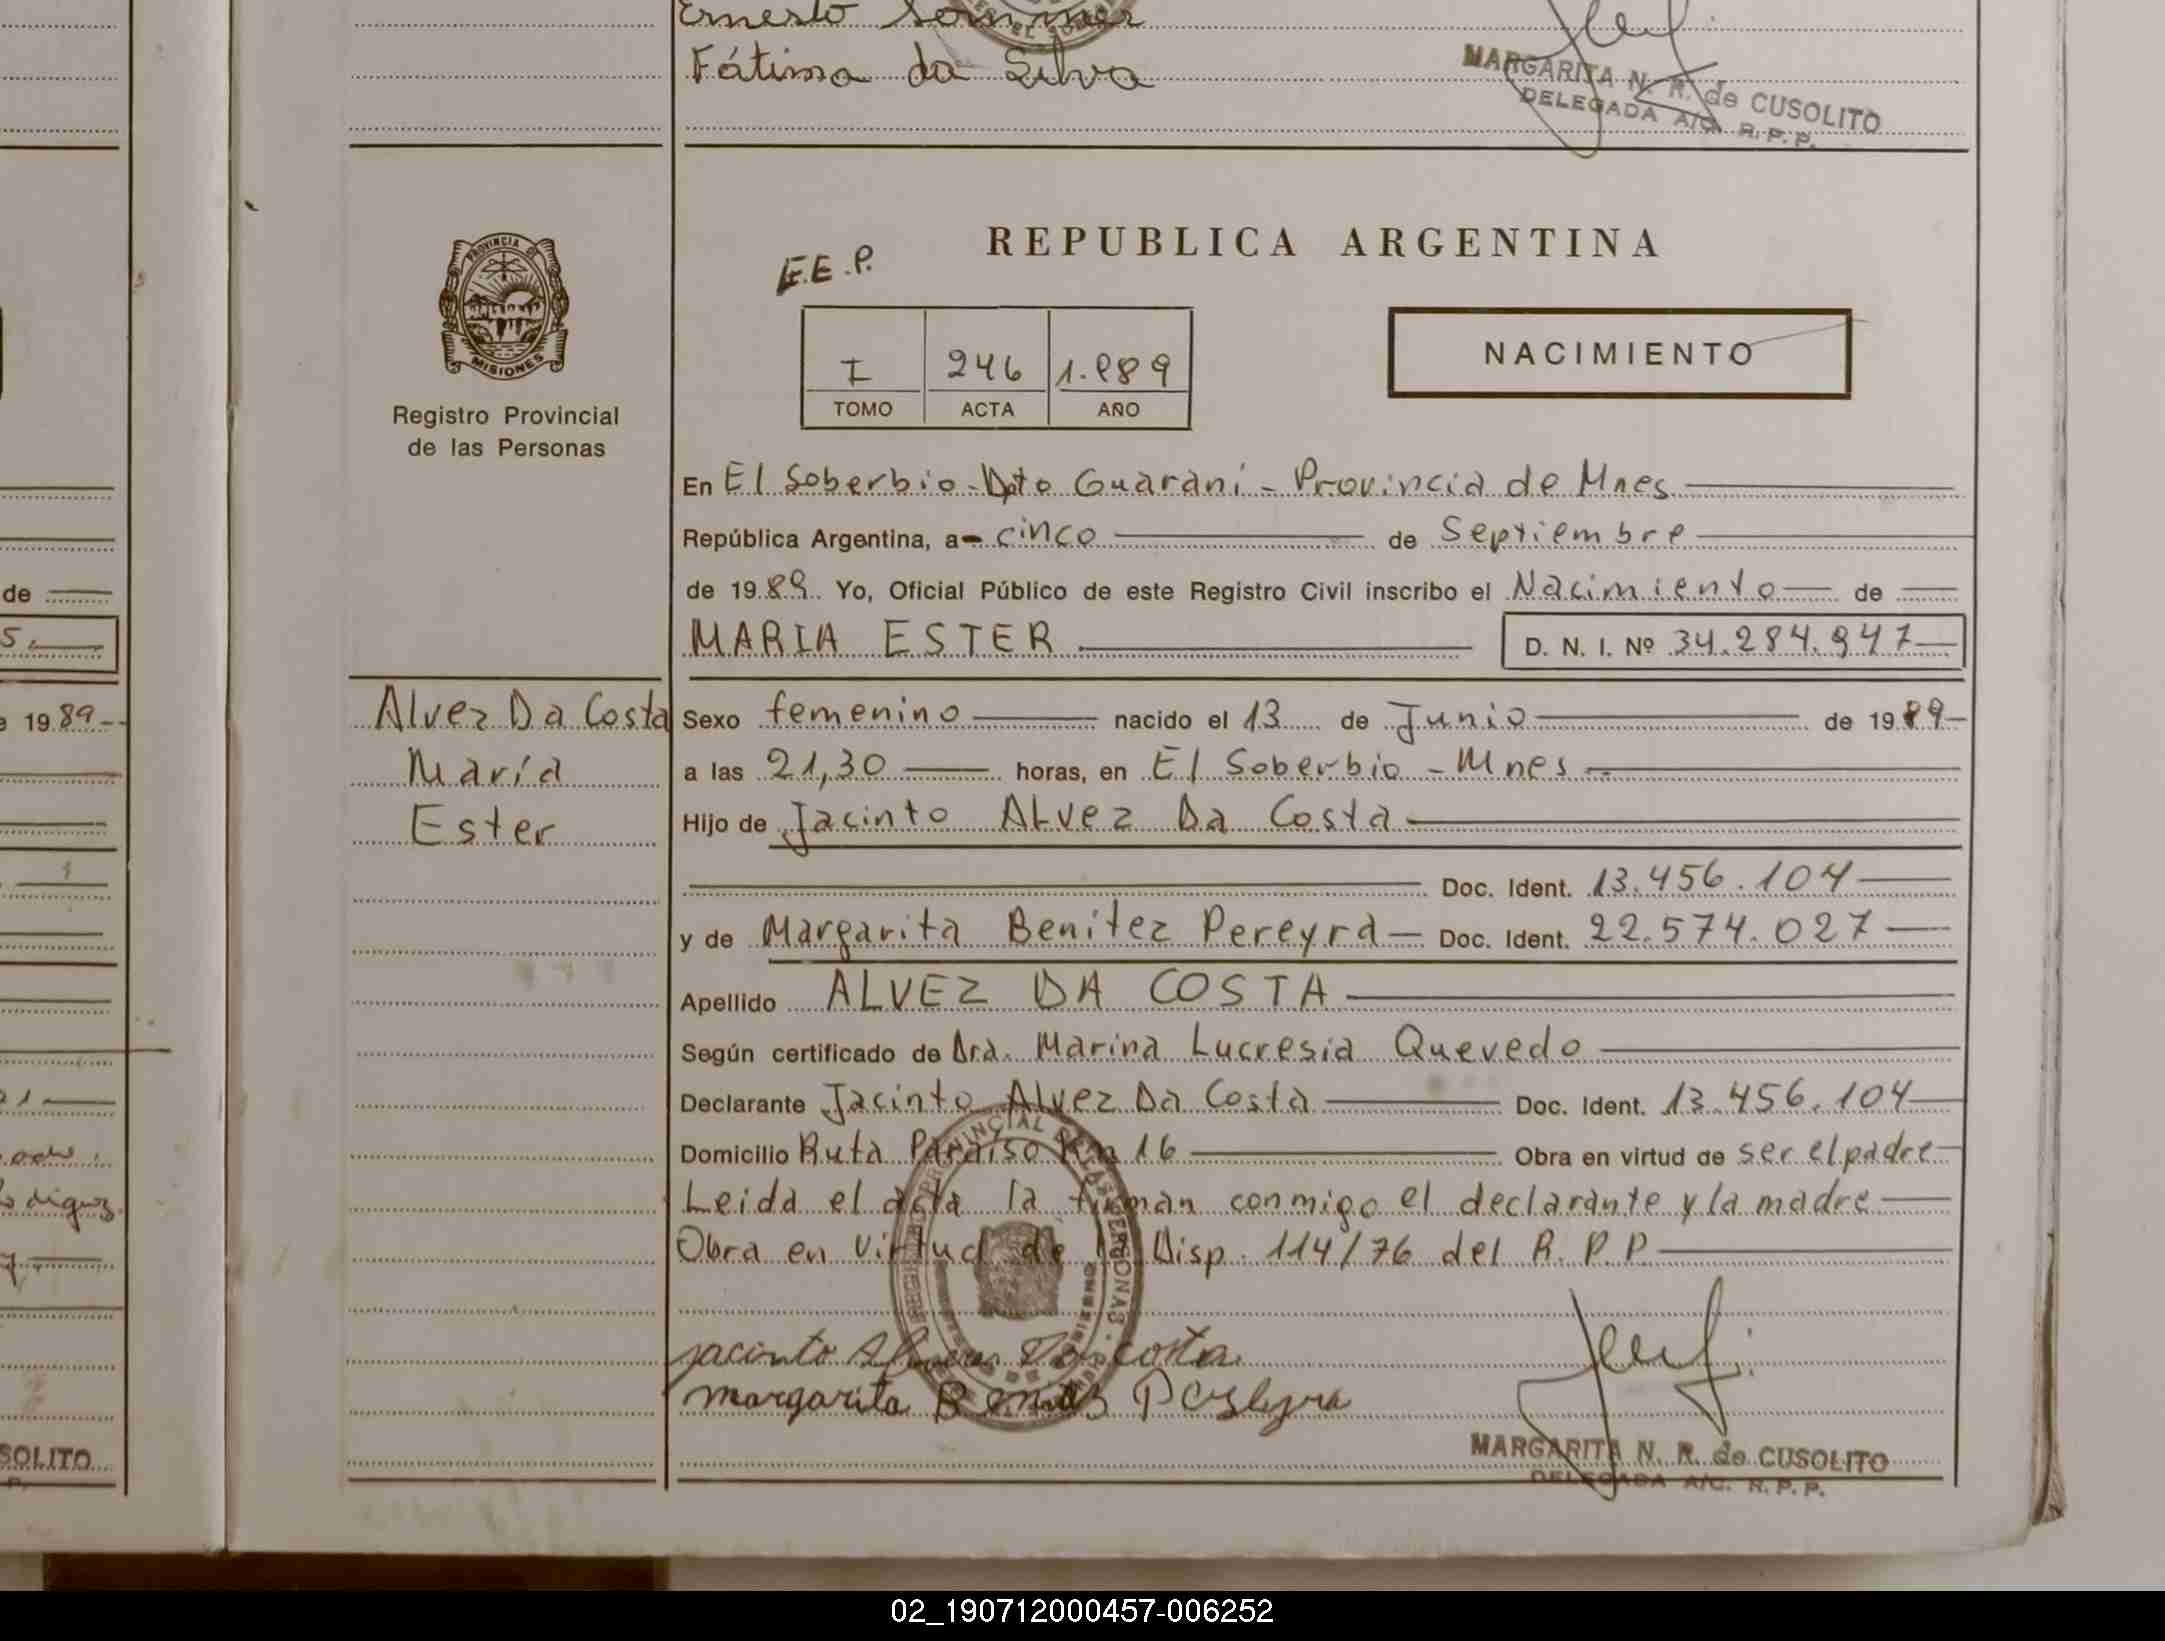 Ernesto Sommer
Fátima da Silva
MARGARITA N. R. de CUSOLITO
DELEGADA A/C. R. P. P.
PROVINCIA DE
MISIONES
Registro Provincial
de las Personas
REPUBLICA ARGENTINA
E.E.P.
I 246 1.989
TOMO ACTA AÑO
NACIMIENTO
En El Soberbio - Dpto Guaraní - Provincia de Mnes
República Argentina, a cinco de Septiembre
de 1989. Yo, Oficial Público de este Registro Civil inscribo el Nacimiento de
MARIA ESTER D. N. I. Nº 34.284.947
Alvez Da Costa
María
Ester
Sexo femenino nacido el 13 de Junio de 1989
a las 21,30 horas, en El Soberbio - Mnes
Hijo de Jacinto Alvez Da Costa
Doc. Ident. 13.456.104
y de Margarita Benítez Pereyra Doc. Ident. 22.574.027
Apellido ALVEZ DA COSTA
Según certificado de Dra. Marina Lucresia Quevedo
Declarante Jacinto Alvez Da Costa Doc. Ident. 13.456.104
Domicilio Ruta Paraíso Km 16 Obra en virtud de ser el padre
Leida el acta la firman conmigo el declarante y la madre
Obra en virtud de la Disp. 114/76 del R. P. P.
jacinto Da costa
margarita Benitez
MARGARITA N. R. de CUSOLITO
DELEGADA A/C. R. P. P.
de
5.
de 1989
21
7
SOLITO
02_190712000457-006252